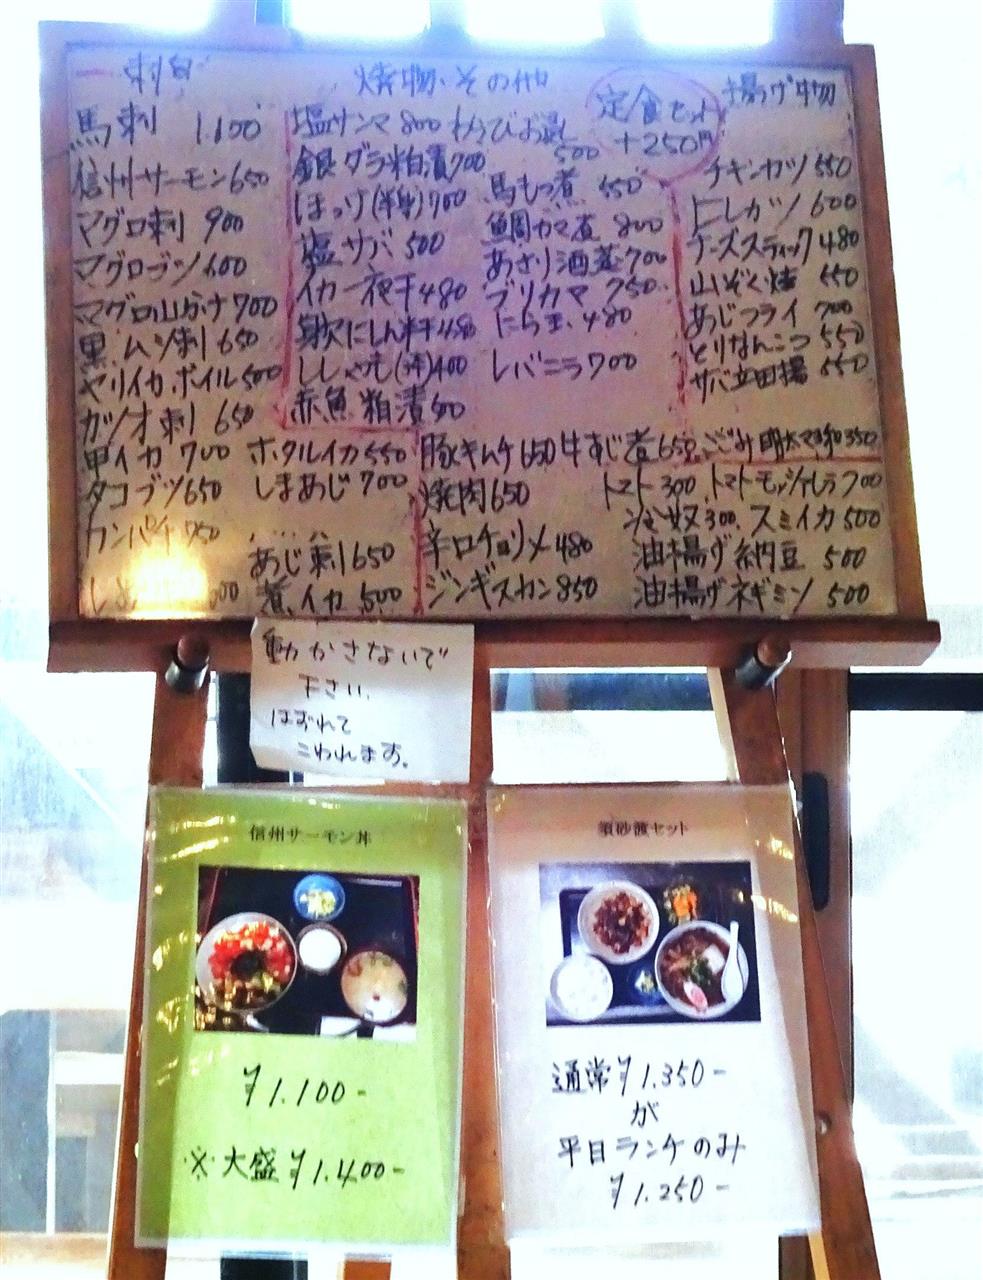 刺身
馬刺 1.100
信州サーモン 650
マグロ刺 900
マグロブツ 600
マグロ山かけ 700
黒ムツ刺 650
ヤリイカボイル 500
カツオ刺 650
甲イカ 700
タコブツ 650
カンパチ 750
ホタルイカ 550
しまあじ 700
あじ刺 650
煮イカ 500
焼物・その他
塩サンマ 800
銀ダラ粕漬 700
ほっけ(半身) 700
塩サバ 500
イカ一夜干 480
身欠にしん半干 480
ししゃも 400
赤魚粕漬 500
わらびお浸し 500
馬もつ煮 550
鯛カマ煮 800
あさり酒蒸 700
ブリカマ 750
にら玉 480
レバニラ 700
定食セット
+250円
揚げ物
チキンカツ 550
ヒレカツ 600
チーズスティック 480
山ぞく焼 550
あじフライ 700
とりなんこつ 550
サバ立田揚 550
豚キムチ 650 牛すじ煮 650 こごみ明太マヨ和 350
焼肉 650
辛口チョリソー 480
ジンギスカン 850
トマト 300 トマトモッツァレラ 700
冷奴 300 スミイカ 500
油揚げ納豆 500
油揚げネギミソ 500
動かさないで
下さい。
はずれて
こわれます。
信州サーモン丼
¥1.100-
※大盛¥1.400-
須砂渡セット
通常¥1.350-
が
平日ランチのみ
¥1.250-